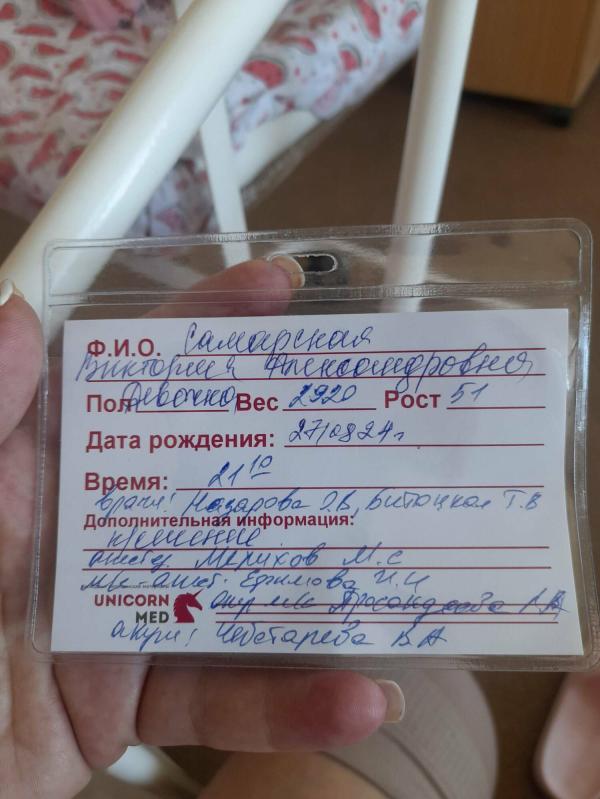 Ф.И.О. Самарская
Виктория Александровна
Пол девочка Вес 2920 Рост 51
Дата рождения: 27/08 24 г
Время: 21 10
врачи: Назарова О.В, Битюцкая Т.В
Дополнительная информация:
анест. Мерихов М.С
м/с-анест. Ефимова И.И
UNICORN
MED
акуш м/с А.А
акуш: Чеботарева В А